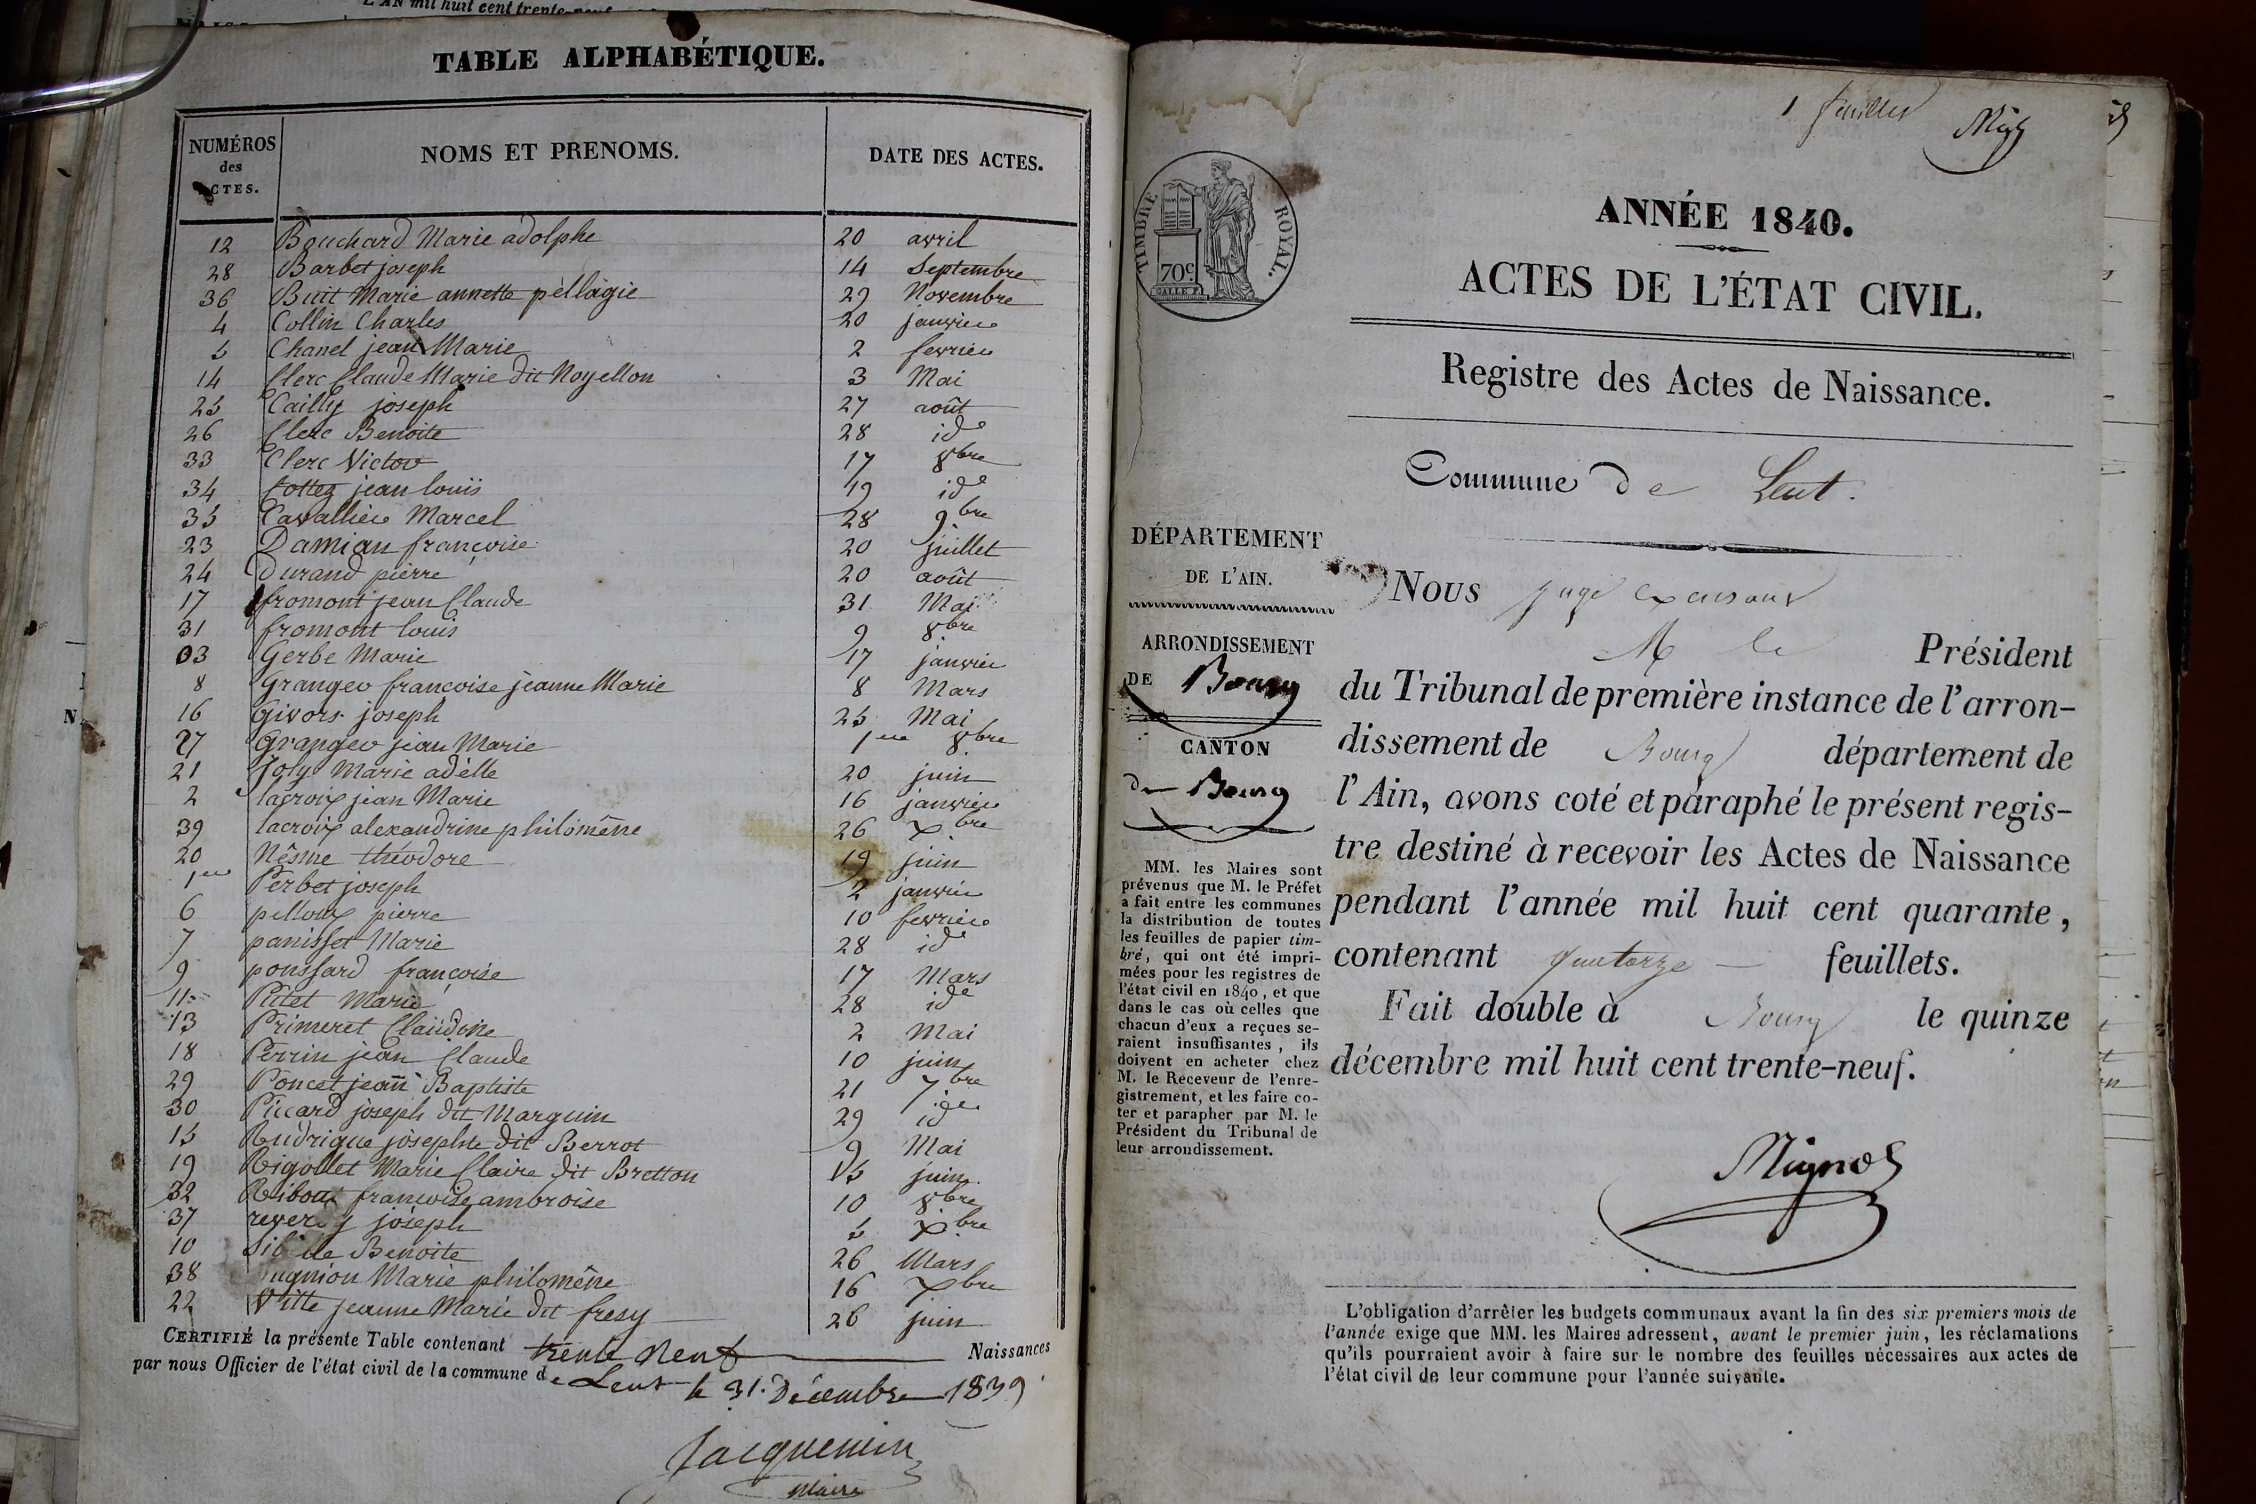 L'AN mil huit cent trente-neuf
TABLE ALPHABÉTIQUE.
NUMÉROS des ACTES. NOMS ET PRENOMS. DATE DES ACTES.
12 Bouchard Marie adolphe 20 avril
28 Barbet joseph 14 Septembre
36 Buit Marie annette pèllagie 29 Novembre
4 Collin Charles 20 janvier
5 Chanel jean Marie 2 fevrier
14 Clerc Claude Marie dit Noyellon 3 Mai
25 Cailly joseph 27 août
26 Clerc Benoite 28 id
33 Clerc Victor 17 8bre
34 Cottez jean louis 19 ide
35 Cavallier Marcel 28 9bre
23 Damian françoise 20 juillet
24 Durand pierre 20 août
17 fromont jean Claude 31 Mai
31 fromont louis 9 8bre
03 Gerbe Marie 17 janvier
8 Granger francoise jeanne Marie 8 Mars
16 Givors joseph 25 Mai
27 Granger jean Marie 1er 8bre
21 Joly Marie adèlle 20 juin
2 lacroix jean Marie 16 janvier
39 lacroix alexandrine philomêne 26 Xbre
20 Nêsme théodore 19 juin
1er Perbet joseph 2 janvier
6 pelloux pierre 10 fevrier
7 panisset Marie 28 id
9 poussard françoise 17 Mars
11 Pitet Marie 28 ide
13 Primeret Claudine 2 Mai
18 Perrin jean Claude 10 juin
29 Poncet jean Baptiste 21 7bre
30 Piccard joseph dit Marguin 29 id
15 Rudrigue josephte dit Berrot 9 Mai
19 Rigollet Marie Claire dit Bretton 15 juin
32 Riboux françoise ambroise 10 8bre
37 joseph 5 Xbre
10 Benoite 26 Mars
38 Marie philomêne 16 Xbre
22 Vitte jeanne Marie dit fresy 26 juin
CERTIFIÉ la présente Table contenant trente Neuf Naissances
par nous Officier de l'état civil de la commune de Lent le 31 Décembre 1839
Jacquemin
Maire
1 feuillet
ANNÉE 1840.
ACTES DE L'ÉTAT CIVIL.
Registre des Actes de Naissance.
Commune de Lent.
TIMBRE ROYAL.
70c
DÉPARTEMENT
DE L'AIN.
ARRONDISSEMENT
DE Bourg
CANTON
de Bourg
MM. les Maires sont
prévenus que M. le Préfet
a fait entre les communes
la distribution de toutes
les feuilles de papier tim-
bré, qui ont été impri-
mées pour les registres de
l'état civil en 1840, et que
dans le cas où celles que
chacun d'eux a reçues se-
raient insuffisantes, ils
doivent en acheter chez
M. le Receveur de l'enre-
gistrement, et les faire co-
ter et parapher par M. le
Président du Tribunal de
leur arrondissement.
Nous juge
M le Président
du Tribunal de première instance de l'arron-
dissement de Bourg département de
l'Ain, avons coté et paraphé le présent regis-
tre destiné à recevoir les Actes de Naissance
pendant l'année mil huit cent quarante,
contenant quatorze feuillets.
Fait double à Bourg le quinze
décembre mil huit cent trente-neuf.
L'obligation d'arrêter les budgets communaux avant la fin des six premiers mois de
l'année exige que MM. les Maires adressent, avant le premier juin, les réclamations
qu'ils pourraient avoir à faire sur le nombre des feuilles nécessaires aux actes de
l'état civil de leur commune pour l'année suivante.